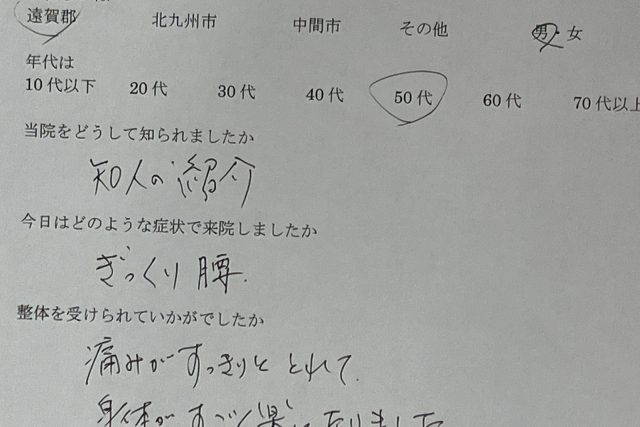 遠賀郡 北九州市 中間市 その他 男・女
年代は
10代以下 20代 30代 40代 50代 60代 70代以上
当院をどうして知られましたか
知人の紹介
今日はどのような症状で来院しましたか
ぎっくり腰.
整体を受けられていかがでしたか
痛みがすっきりととれて.
身体がすごく楽になりました